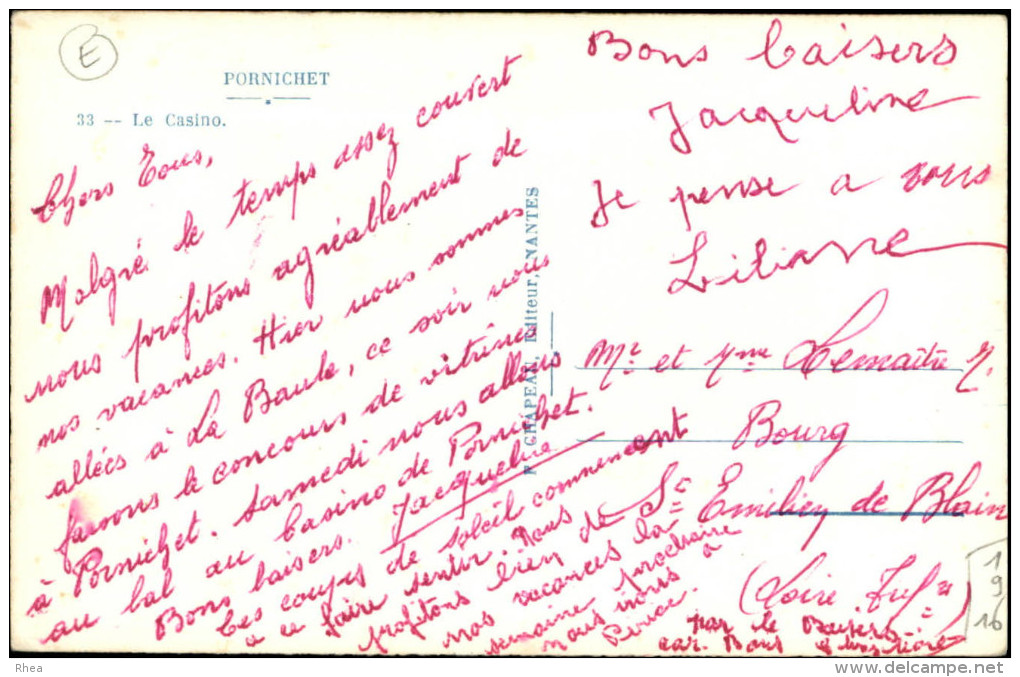 E
PORNICHET
33 -- Le Casino.
Chers Tous,
Malgré le temps assez couvert
nous profitons agréablement de
nos vacances. Hier nous sommes
allées à La Baule, ce soir nous
faisons le concours de vitrines
à Pornichet. Samedi nous allons
au bal au Casino de Pornichet.
Bons baisers. Jacqueline
Les coups de soleil commencent
à ce faire sentir. Nous
profitons bien de
nos vacances la
semaine prochaine
nous irons à
CHAPEAU, Editeur, NANTES
Bons baisers
Jacqueline
Je pense a vous
Liliane
Mr. et Mme Lemaître M.
Bourg
St Emilien de Blain
(Loire Infre)
par le
car. Bons
1
9
16
Rhea
www.delcampe.net